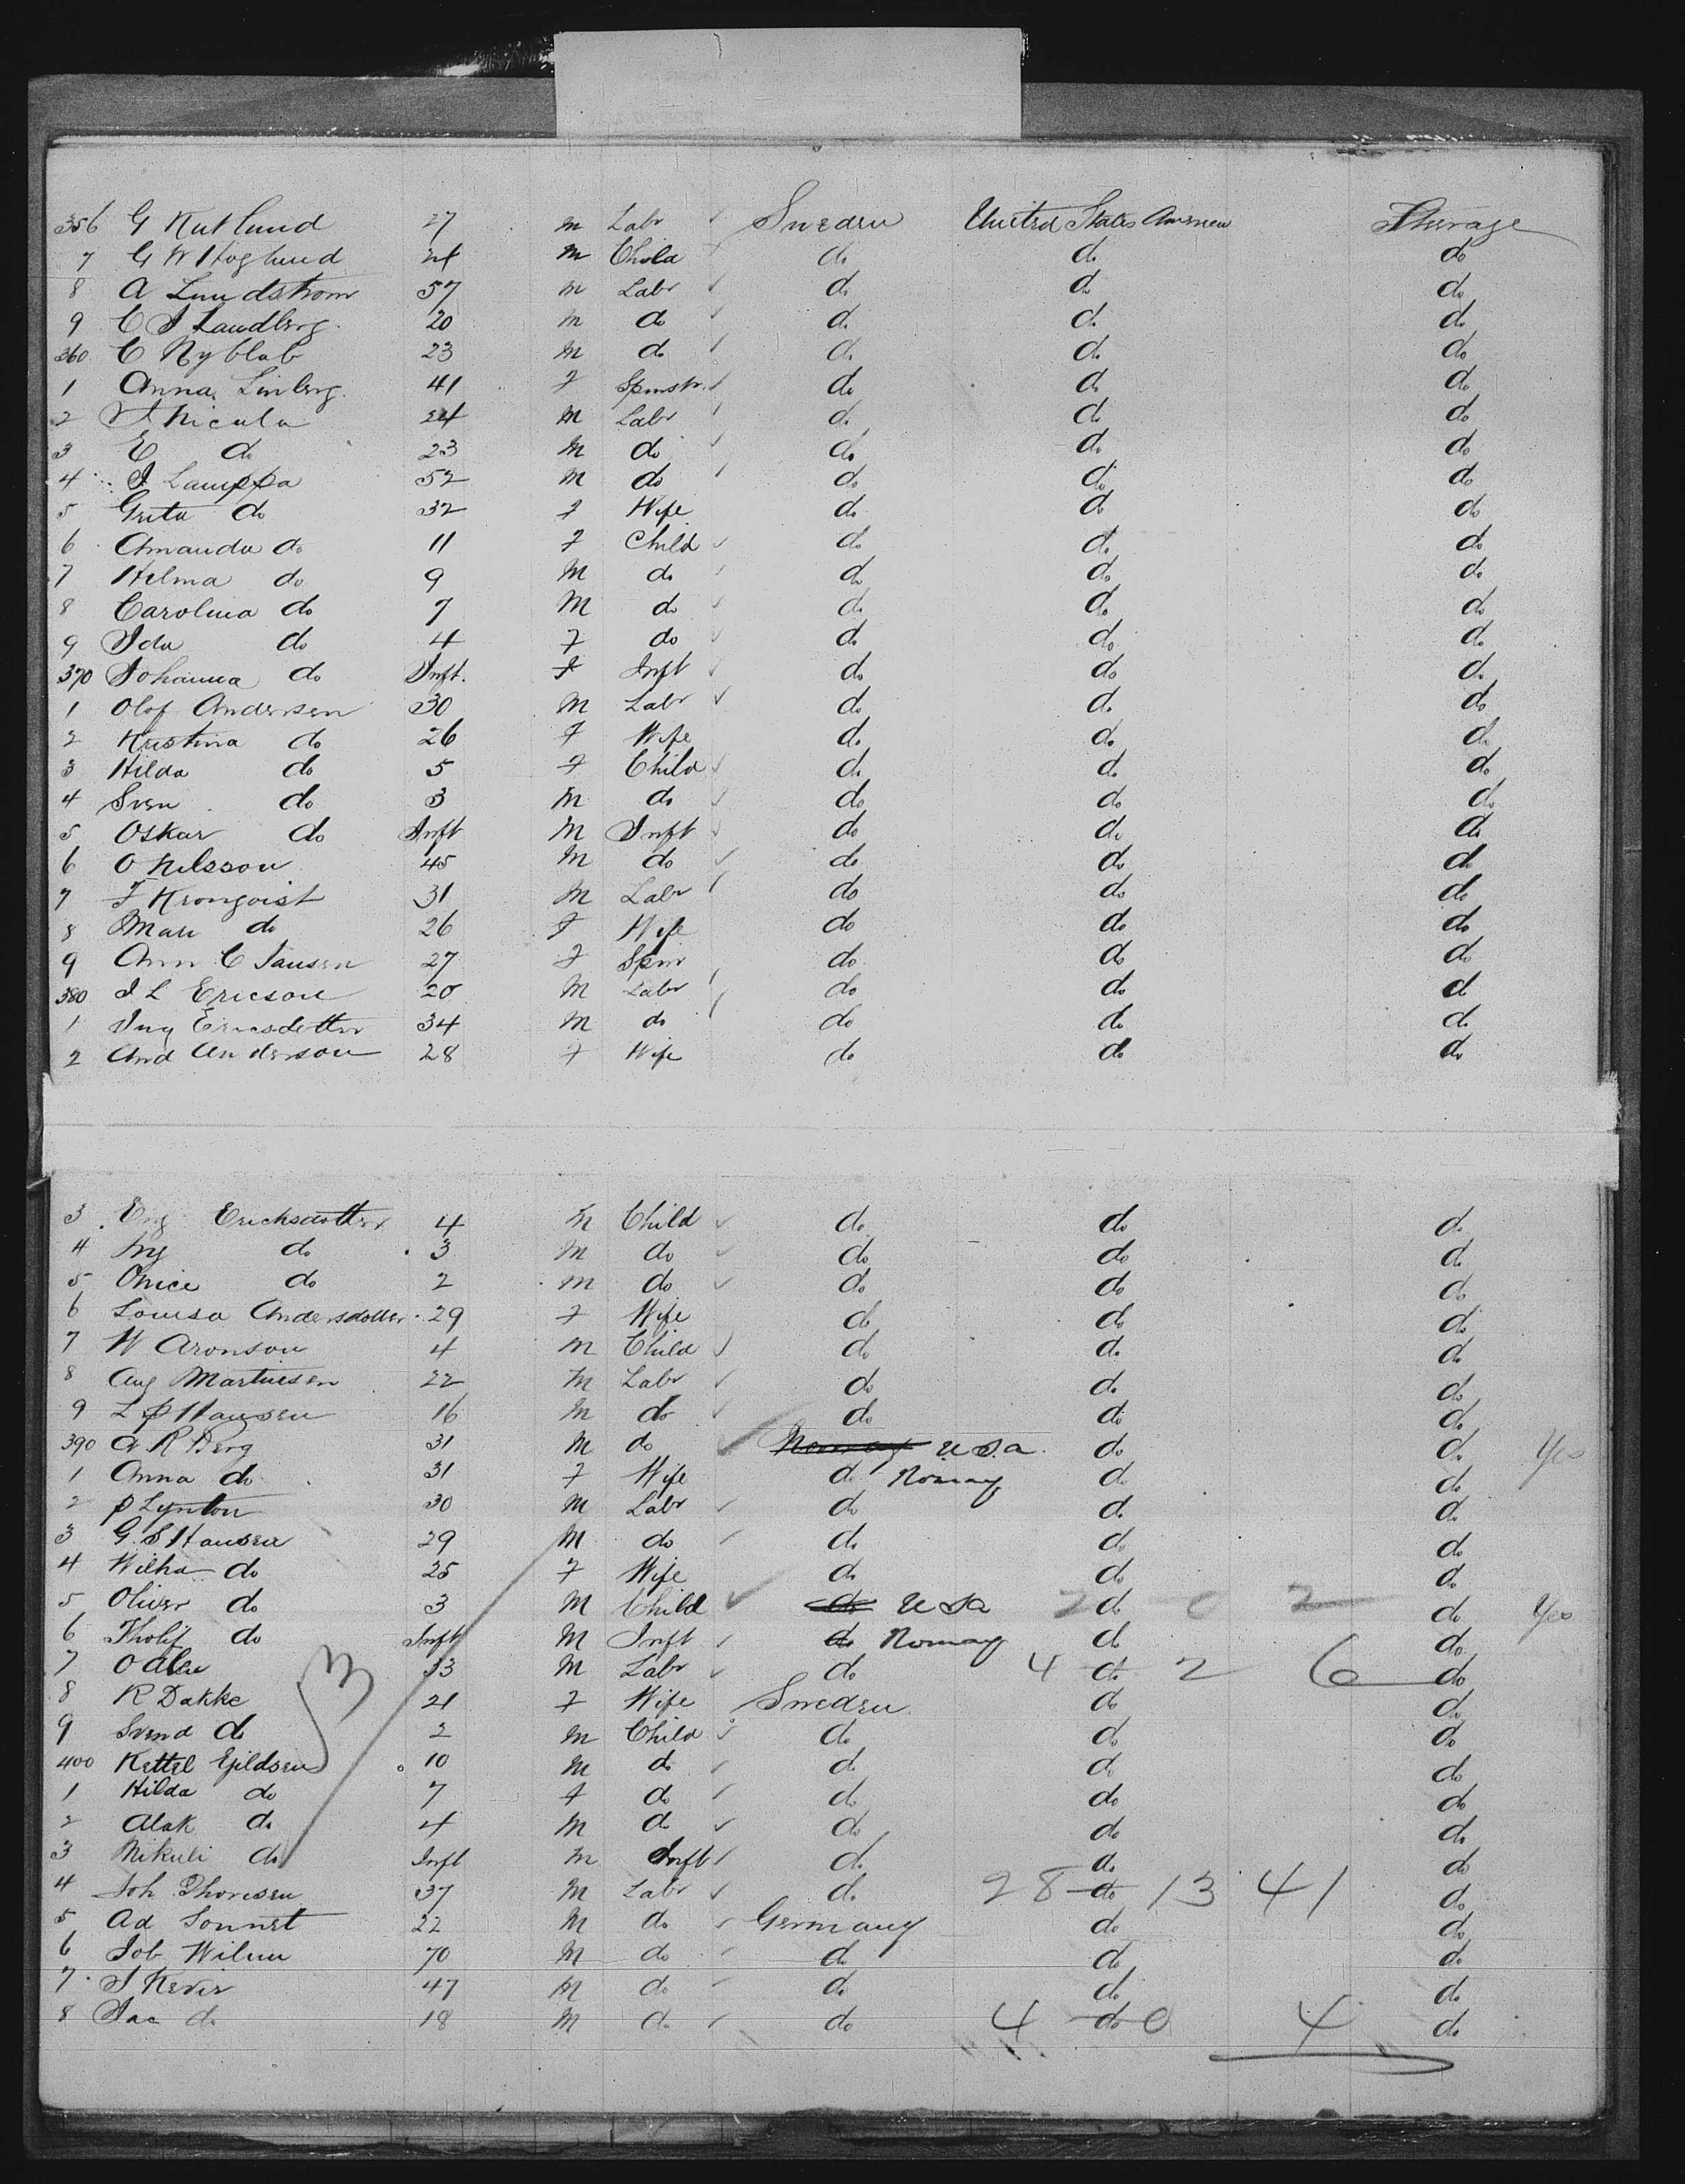 356 G Rutlund 27 m Labr Sweden United States America Steerage
7 G W Hoglund 24 m Child do do do
8 A Lundstrom 57 m Labr do do do
9 C J Landberg 20 m do do do do
360 C Nyblab 23 m do do do do
1 Anna Linberg 41 F Spinstr do do do
2 J Nicula 24 m Labr do do do
3 E do 23 m do do do do
4 I Lamppa 52 m do do do do
5 Greta do 32 F Wife do do do
6 Amanda do 11 F Child do do do
7 Hilma do 9 M do do do do
8 Carolina do 7 M do do do do
9 Ida do 4 F do do do do
370 Johanna do Inft. F Inft do do do
1 Olof Andersen 30 M Labr do do do
2 Kristina do 26 F Wife do do do
3 Hilda do 5 F Child do do do
4 Sven do 3 m do do do do
5 Oskar do Inft M Inft do do do
6 O Nilsson 45 M do do do do
7 F Kronqvist 31 M Labr do do do
8 Mari do 26 F Wife do do do
9 Ann C Jansen 27 F Spin do do do
380 I L Ericson 20 M Labr do do d
1 Ing Ericsdetter 34 M do do do do
2 And Anderson 28 F Wife do do do
3 Eng Erichsdotter 4 m Child do do do
4 Ing do 3 m do do do do
5 do 2 m do do do do
6 Louisa Andersdotter 29 F Wife do do do
7 W Aronson 4 m Child do do do
8 Aug Martinsen 22 m Labr do do do
9 L P Hansen 16 M do do do do
390 A R Berg 31 M do Norway U.S.A. do do Yes
1 Anna do 31 F Wife do Norway do do
2 P Lynton 30 M Labr do do do
3 G S Hansen 29 M do do do do
4 Wilha do 25 F Wife do do do
5 Oliver do 3 M Child do U S A 2 do 0 2 do Yes
6 Tholf do Inft M Inft do Norway do do
7 O Alen 33 M Labr do 4 do 2 6 do
8 R Dakke 21 F Wife Sweden do do
9 Svend do 2 m Child do do do
400 Kettel Ejildsen 10 m do do do do
1 Hilda do 7 F do do do do
2 Alak do 4 M do do do do
3 Nikuli do Inft m Inft do do do
4 Joh Thoresen 37 M Labr do 28 do 13 41 do
5 Ad Sonnet 22 M do Germany do do
6 Job Wilun 70 M do do do do
7 J Kever 47 M do do do do
8 Jac do 18 M do do 4 do 0 4 do